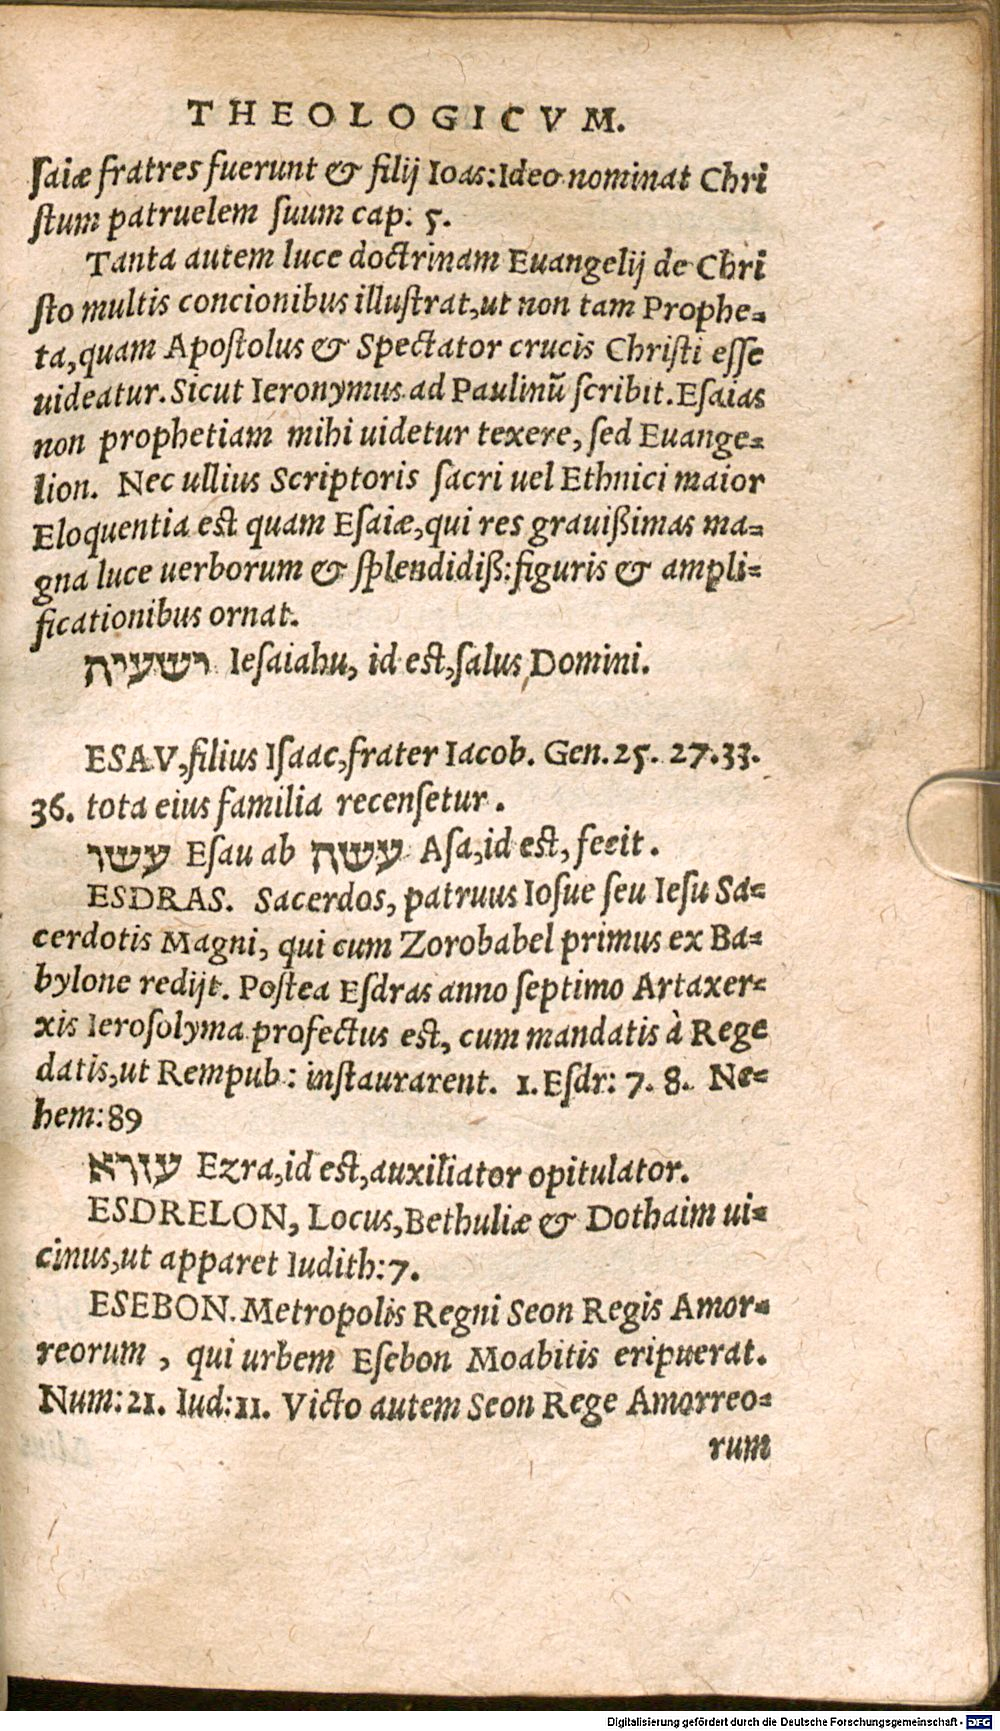 THEOLOGICVM.
ſaiæ fratres fuerunt & filij Ioas: Ideo nominat Chri
ſtum patruelem ſuum cap: 5.
Tanta autem luce doctrinam Euangelij de Chri
ſto multis concionibus illuſtrat, ut non tam Prophe-
ta, quam Apoſtolus & Spectator crucis Chriſti eſſe
uideatur. Sicut Ieronymus ad Paulinũ ſcribit. Eſaias
non prophetiam mihi uidetur texere, ſed Euange-
lion. Nec ullius Scriptoris ſacri uel Ethnici maior
Eloquentia eſt quam Eſaiæ, qui res grauißimas ma-
gna luce uerborum & ſplendidiß: figuris & ampli-
ficationibus ornat.
ישעיה Ieſaiahu, id eſt, ſalus Domini.
ESAV, filius Iſaac, frater Iacob. Gen. 25. 27. 33.
36. tota eius familia recenſetur.
עשו Eſau ab עשה Aſa, id eſt, fecit.
ESDRAS. Sacerdos, patruus Ioſue ſeu Ieſu Sa-
cerdotis Magni, qui cum Zorobabel primus ex Ba-
bylone redijt. Poſtea Eſdras anno ſeptimo Artaxer-
xis Ieroſolyma profectus eſt, cum mandatis à Rege
datis, ut Rempub: inſtaurarent. 1. Eſdr: 7. 8. Ne-
hem: 89
עזרא Ezra, id eſt, auxiliator opitulator.
ESDRELON, Locus, Bethuliæ & Dothaim ui-
cinus, ut apparet Iudith: 7.
ESEBON. Metropolis Regni Seon Regis Amor-
reorum, qui urbem Eſebon Moabitis eripuerat.
Num: 21. Iud: 11. Victo autem Seon Rege Amorreo-
rum
Digitalisierung gefördert durch die Deutsche Forschungsgemeinschaft - DFG